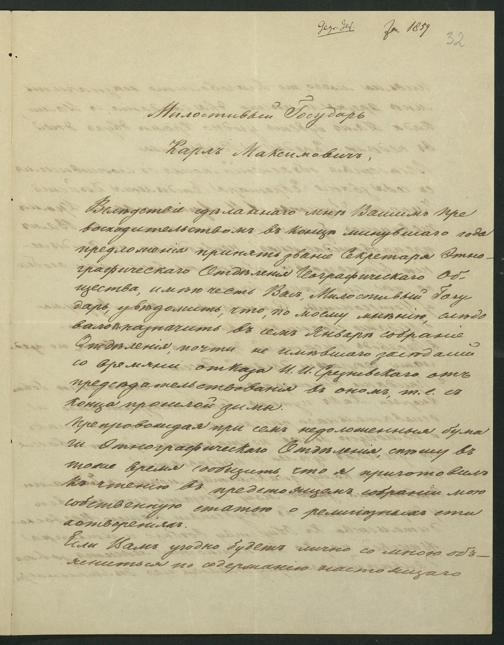 1859
32
Милостивый Государь
Карлъ Максимовичъ,
Вслѣдствіе сдѣланнаго мнѣ Вашимъ Пре
восходительствомъ въ концѣ минувшаго года
предложенія принять званіе Секретаря Этно-
графическаго Отдѣленія Географическаго Об-
щества, имѣю честь Васъ, Милостивый Госу-
дарь, увѣдомить, что, по моему мнѣнію, слѣдо
вало бы назначить въ семъ Январѣ собраніе
Отдѣленія, почти не имѣвшаго засѣданій
со времяни отказа И. И. Срезневскаго отъ
предсѣдательствованія въ ономъ, т. е. съ
конца прошлой зимы.
Препровождая при семъ недоложенныя бума
ги Этнографическаго Отдѣленія, спѣшу въ
тоже время сообщить что я приготовилъ
къ чтенію въ предстоящемъ собраніи мою
собственную статью о религіозныхъ сти
хотвореніяхъ.
Если Вамъ угодно будетъ лично со мною объ-
ясниться по содержанію настоящаго